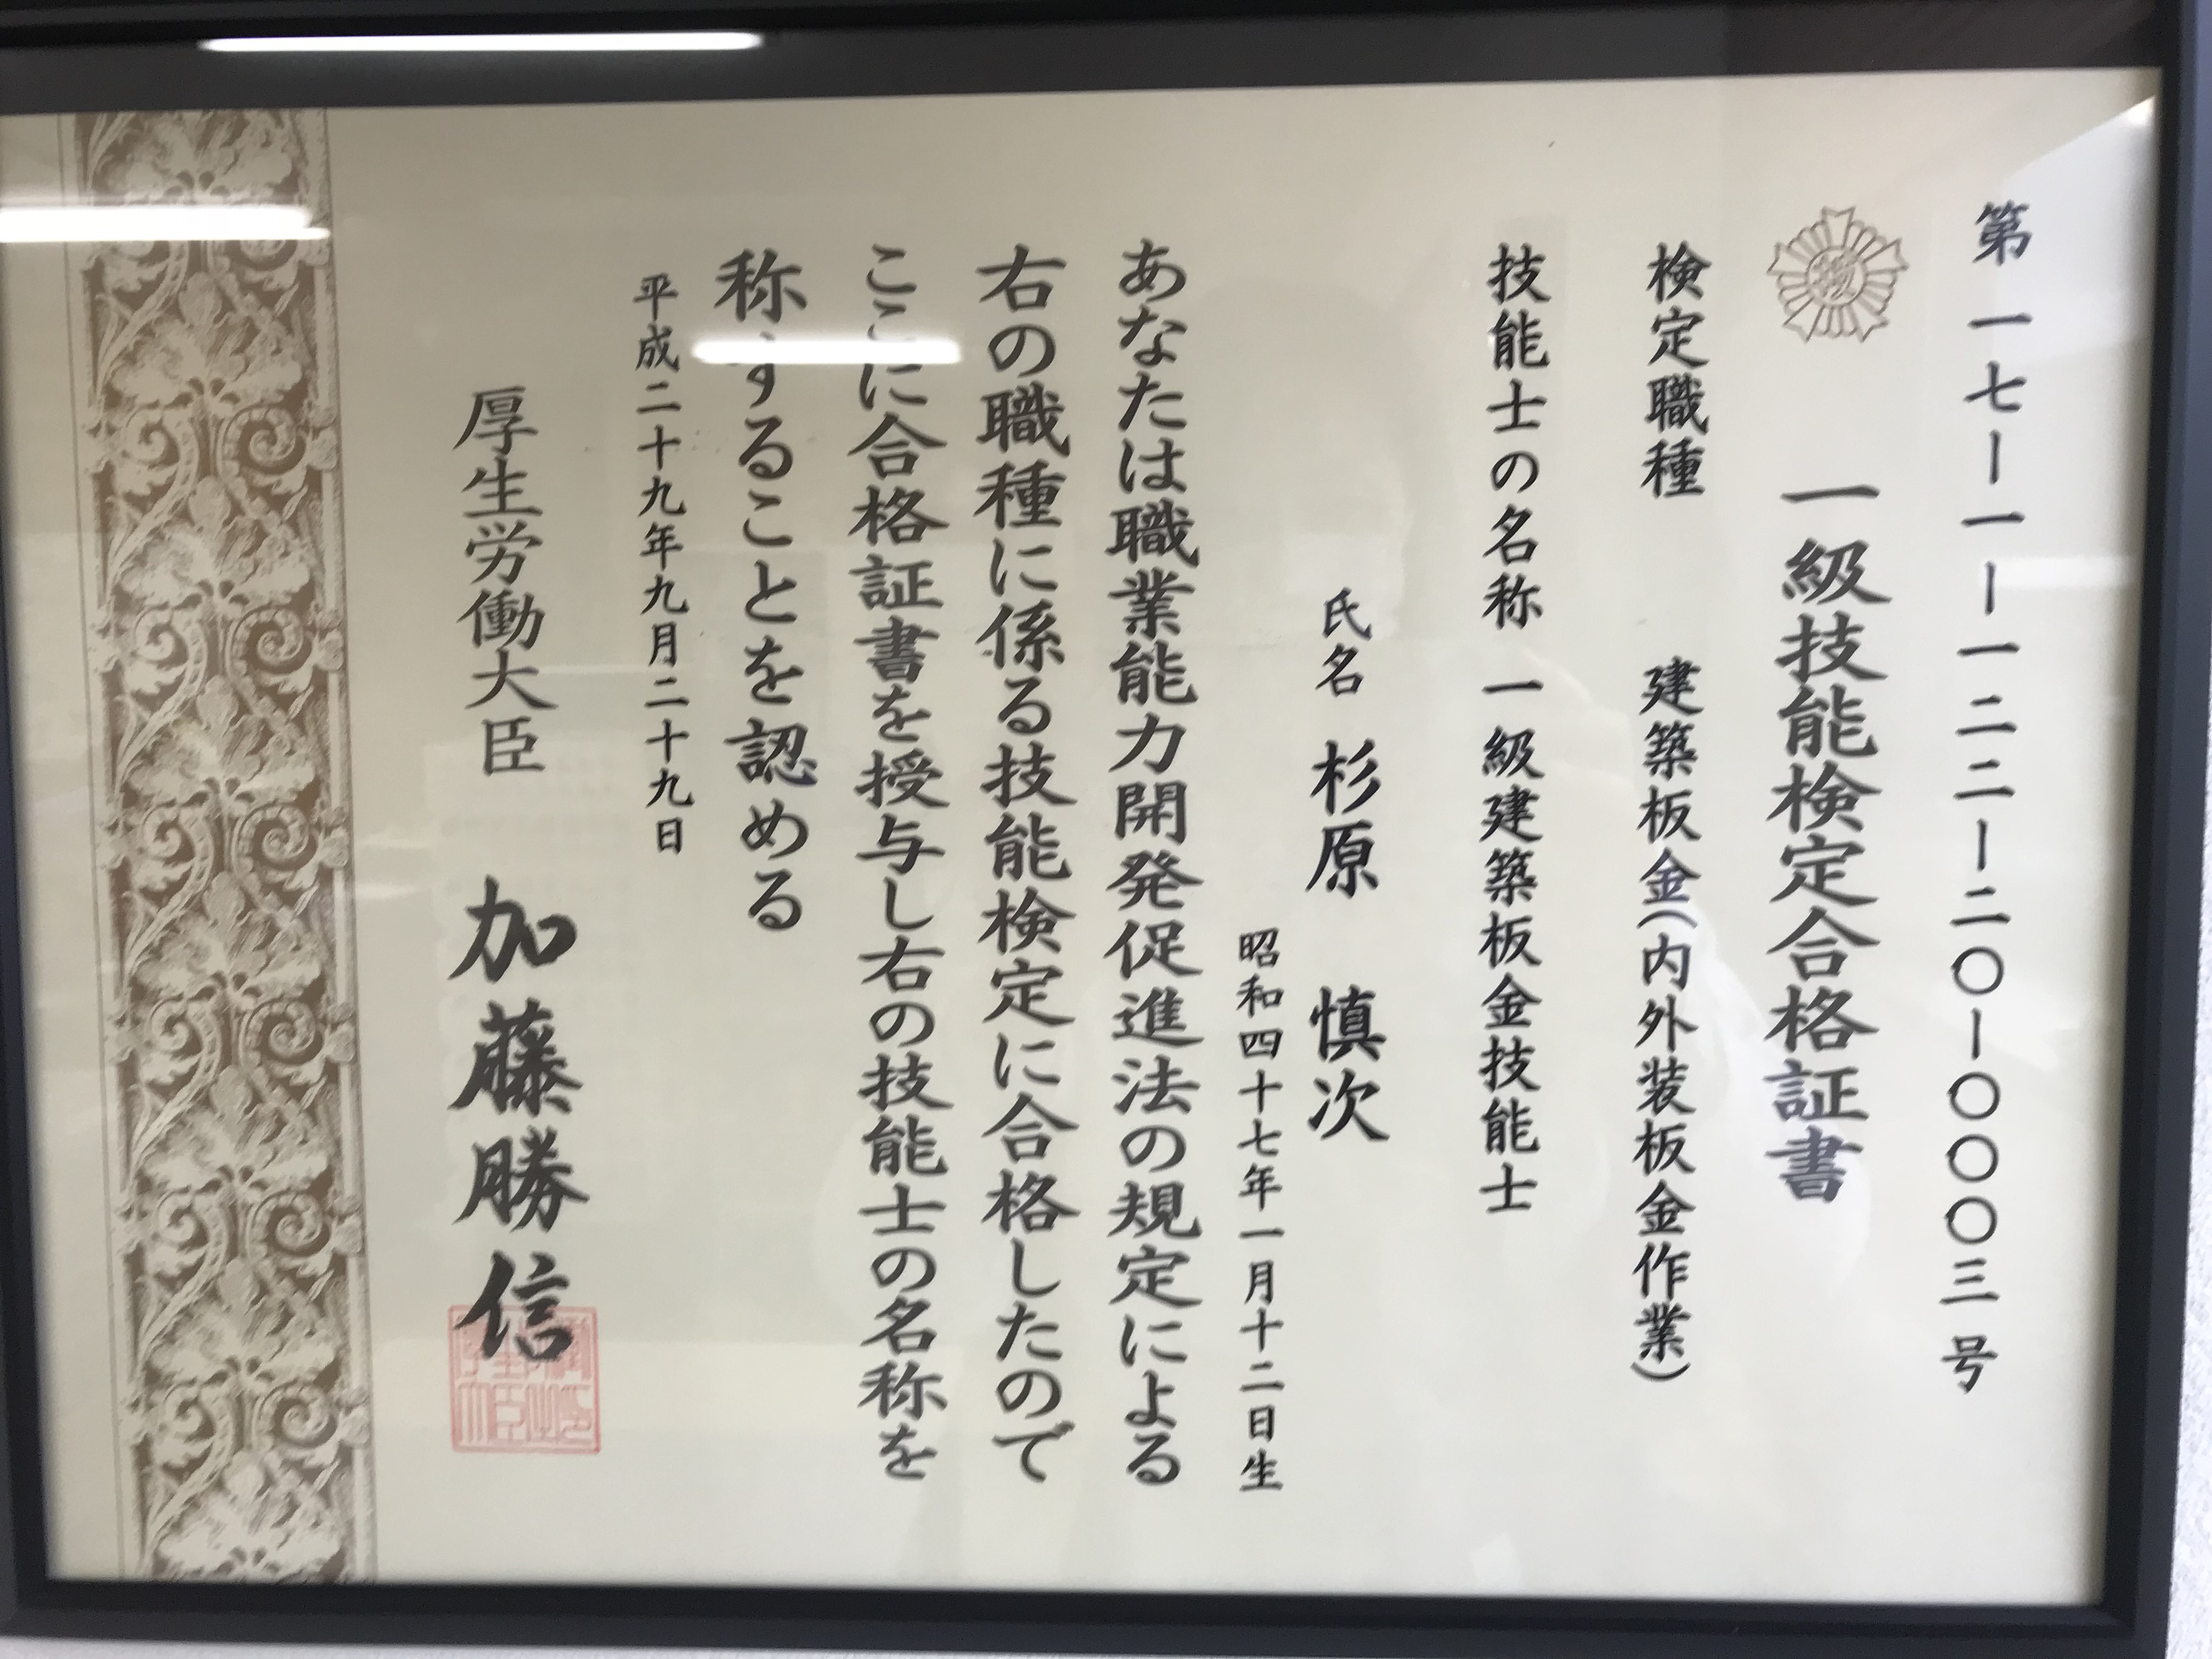 第一七ー一ー一二二ー二〇ー〇〇〇三号
一級技能検定合格証書
検定職種 建築板金(内外装板金作業)
技能士の名称 一級建築板金技能士
氏名 杉原 慎次
昭和四十七年一月十二日生
あなたは職業能力開発促進法の規定による
右の職種に係る技能検定に合格したので
ここに合格証書を授与し右の技能士の名称を
称することを認める
平成二十九年九月二十九日
厚生労働大臣 加藤勝信